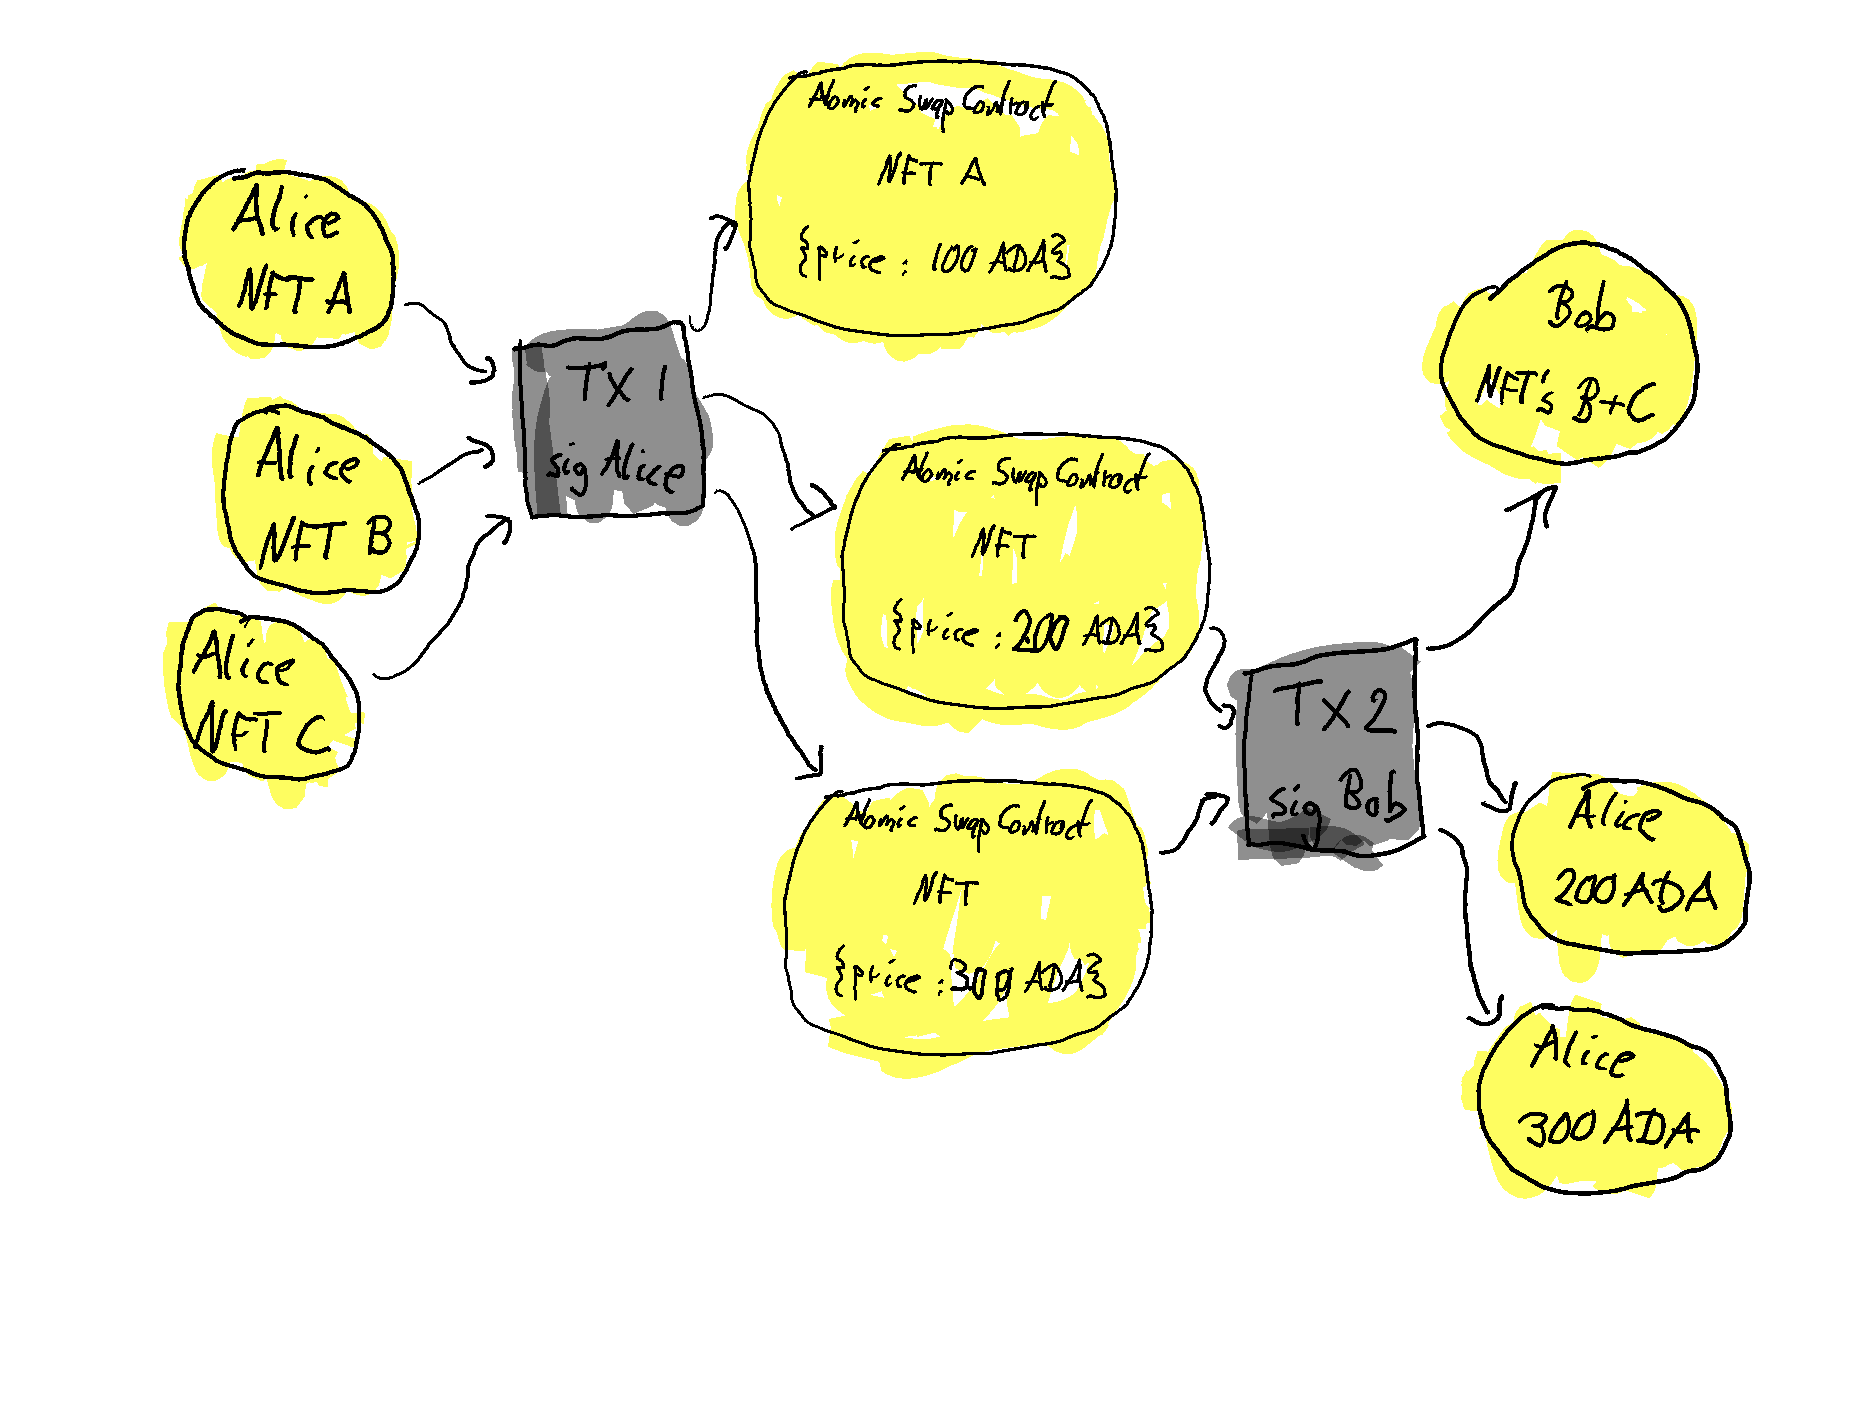 Alice
NFT A
Alice
NFT B
Alice
NFT C
TX 1
sig Alice
Atomic Swap Contract
NFT A
{price : 100 ADA}
Atomic Swap Contract
NFT
{price : 200 ADA}
Atomic Swap Contract
NFT
{price : 300 ADA}
TX 2
sig Bob
Bob
NFT's B+C
Alice
200 ADA
Alice
300 ADA